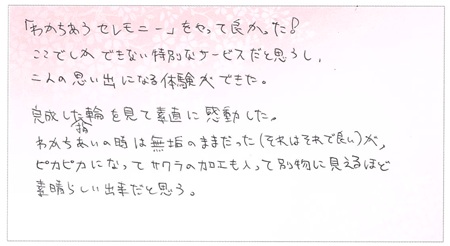 「わかちあうセレモニー」をやって良かった!
ここでしかできない特別なサービスだと思うし、
二人の思い出になる体験ができた。
完成した指輪を見て素直に感動した。
わかちあいの時は無垢のままだった(それはそれで良い)が、
ピカピカになってサクラの加工も入って別物に見えるほど
素晴らしい出来だと思う。